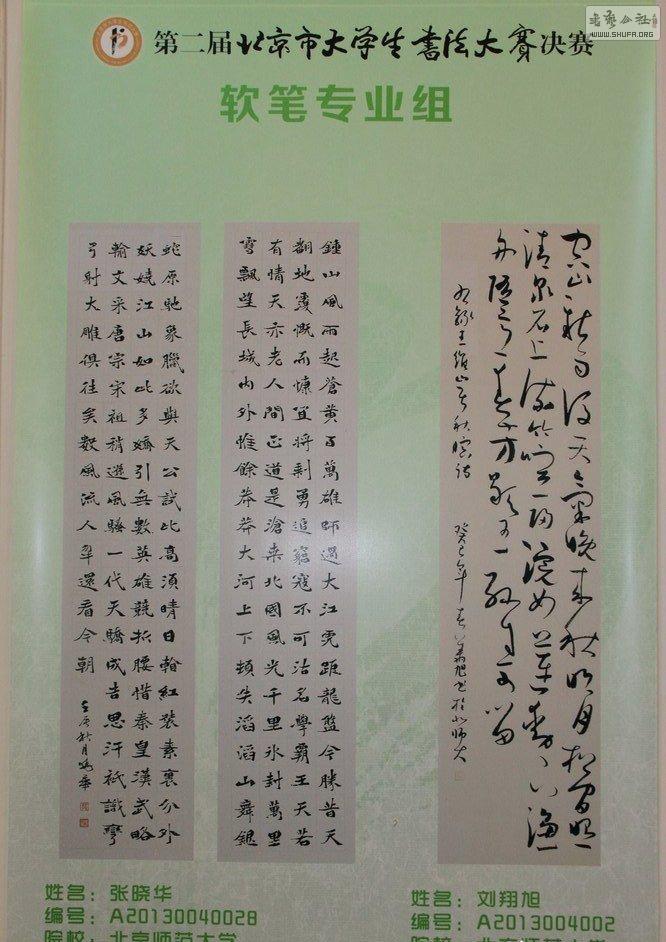 書藝公社
WWW.SHUFA.ORG
第二届北京市大学生书法大赛决赛
软笔专业组
空山新雨後天氣晚來秋明月松間照
清泉石上流竹喧歸浣女蓮動下漁
舟隨意春芳歇王孫自可留
右錄王維山居秋暝詩 癸巳年春翔旭書於北師大
鍾山風雨起蒼黃百萬雄師過大江虎踞龍盤今勝昔天
翻地覆慨而慷宜將剩勇追窮寇不可沽名學霸王天若
有情天亦老人間正道是滄桑北國風光千里氷封萬里
雪飄望長城內外惟餘莽莽大河上下頓失滔滔山舞銀
蛇原馳象臘欲與天公試比高須晴日看紅裝素裹分外
妖嬈江山如此多嬌引無數英雄競折腰惜秦皇漢武略
輸文采唐宗宋祖稍遜風騷一代天驕成吉思汗祇識彎
弓射大雕俱往矣數風流人物還看今朝
壬辰秋月曉華
姓名：张晓华
编号：A20130040028
院校：北京师范大学
姓名：刘翔旭
编号：A2013004002